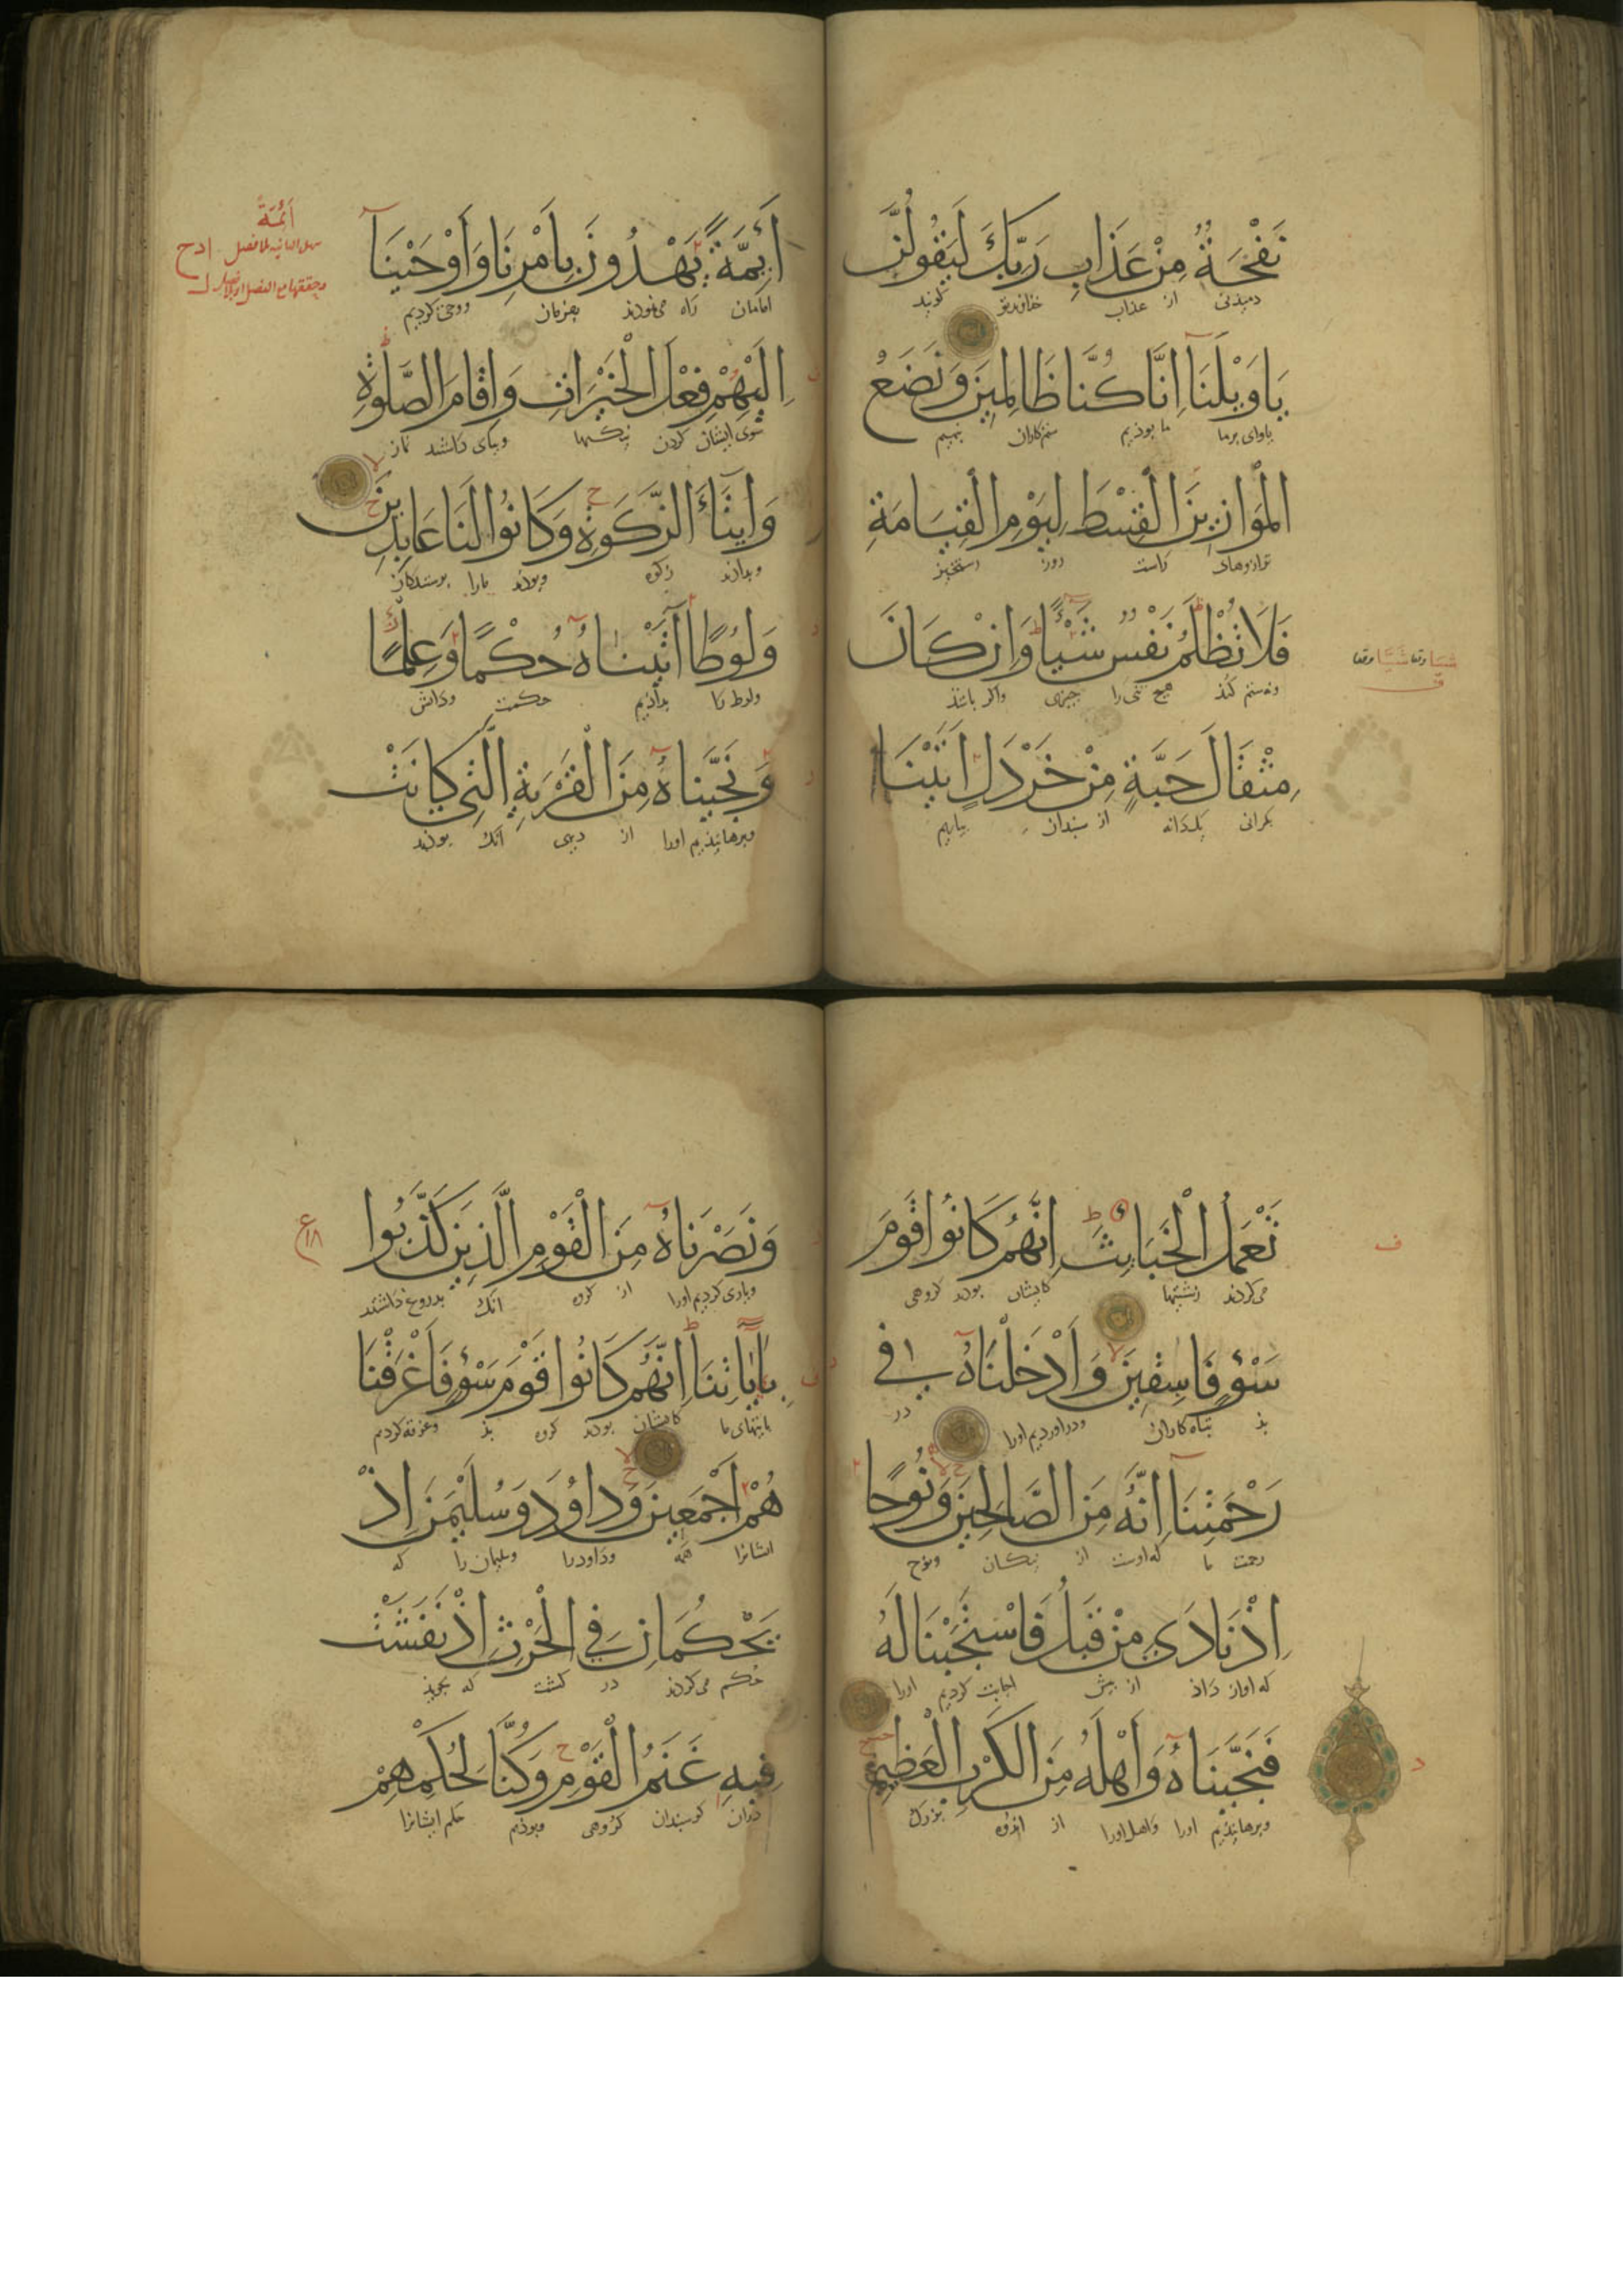 نَفْحَةٌ مِنْ عَذَابِ رَبِّكَ لَيَقُولُنَّ
دمیدنی از عذاب خداوند تو گویند
يَاوَيْلَنَا اِنَّا كُنَّا ظَالِمِينَ وَنَضَعُ
یاوای برما ما بوذیم ستم‌کاران بنهیم
الْمَوَازِينَ الْقِسْطَ لِيَوْمِ الْقِيَامَةِ
ترازوهای راست روز رستخیز
فَلَا تُظْلَمُ نَفْسٌ شَيْئًا وَاِنْ كَانَ
هیچ تنی را چیزی واگر باشذ
مِثْقَالَ حَبَّةٍ مِنْ خَرْدَلٍ اَتَيْنَا
یک دانه از سبندان بیاریم
اَئِمَّةً
اَئِمَّةً يَهْدُونَ بِاَمْرِنَا وَاَوْحَيْنَا
امامان راه می‌نموذند بفرمان ووحی کردیم
اِلَيْهِمْ فِعْلَ الْخَيْرَاتِ وَاِقَامَ الصَّلٰوةِ
سوی ایشان کردن نیکیها وبپای داشتند نماز
وَاِيتَاءَ الزَّكَوةِ وَكَانُوا لَنَا عَابِدِينَ
وبدادند زکوة وبوذند مارا پرستندگان
وَلُوطًا اٰتَيْنَاهُ حُكْمًا وَعِلْمًا
ولوط را بداذیم حکمت ودانش
وَنَجَّيْنَاهُ مِنَ الْقَرْيَةِ الَّتِي كَانَتْ
وبرهانیذیم اورا از دیهی آنک بوذند
تَعْمَلُ الْخَبَايِثَ اِنَّهُمْ كَانُوا قَوْمَ
می‌کردند زشتیها کایشان بوذند گروهی
سَوْءٍ فَاسِقِينَ وَاَدْخَلْنَاهُ فِي
بذ تباه‌کاران ودراوردیم اورا در
رَحْمَتِنَا اِنَّهُ مِنَ الصَّالِحِينَ وَنُوحًا
رحمت ما که اوست از نیکان ونوح
اِذْ نَادَى مِنْ قَبْلُ فَاسْتَجَبْنَا لَهُ
که اواز داذ از پیش اجابت کردیم اورا
فَنَجَّيْنَاهُ وَاَهْلَهُ مِنَ الْكَرْبِ الْعَظِيمِ
وبرهانیذیم اورا واهل اورا از اندوه بزرگ
وَنَصَرْنَاهُ مِنَ الْقَوْمِ الَّذِينَ كَذَّبُوا
ویاری کردیم اورا از گروه آنک بدروغ داشتند
بِاٰيَاتِنَا اِنَّهُمْ كَانُوا قَوْمَ سَوْءٍ فَاَغْرَقْنَا
بایتهای ما کایشان بوذند گروه بذ وغرقه کردیم
هُمْ اَجْمَعِينَ وَدَاوُدَ وَسُلَيْمٰنَ اِذْ
ایشانرا همه وداود را وسلیمان را که
يَحْكُمَانِ فِي الْحَرْثِ اِذْ نَفَشَتْ
حکم می‌کردند در کشت که بچرید
فِيهِ غَنَمُ الْقَوْمِ وَكُنَّا لِحُكْمِهِمْ
دران گوسبندان گروهی وبوذیم حکم ایشانرا